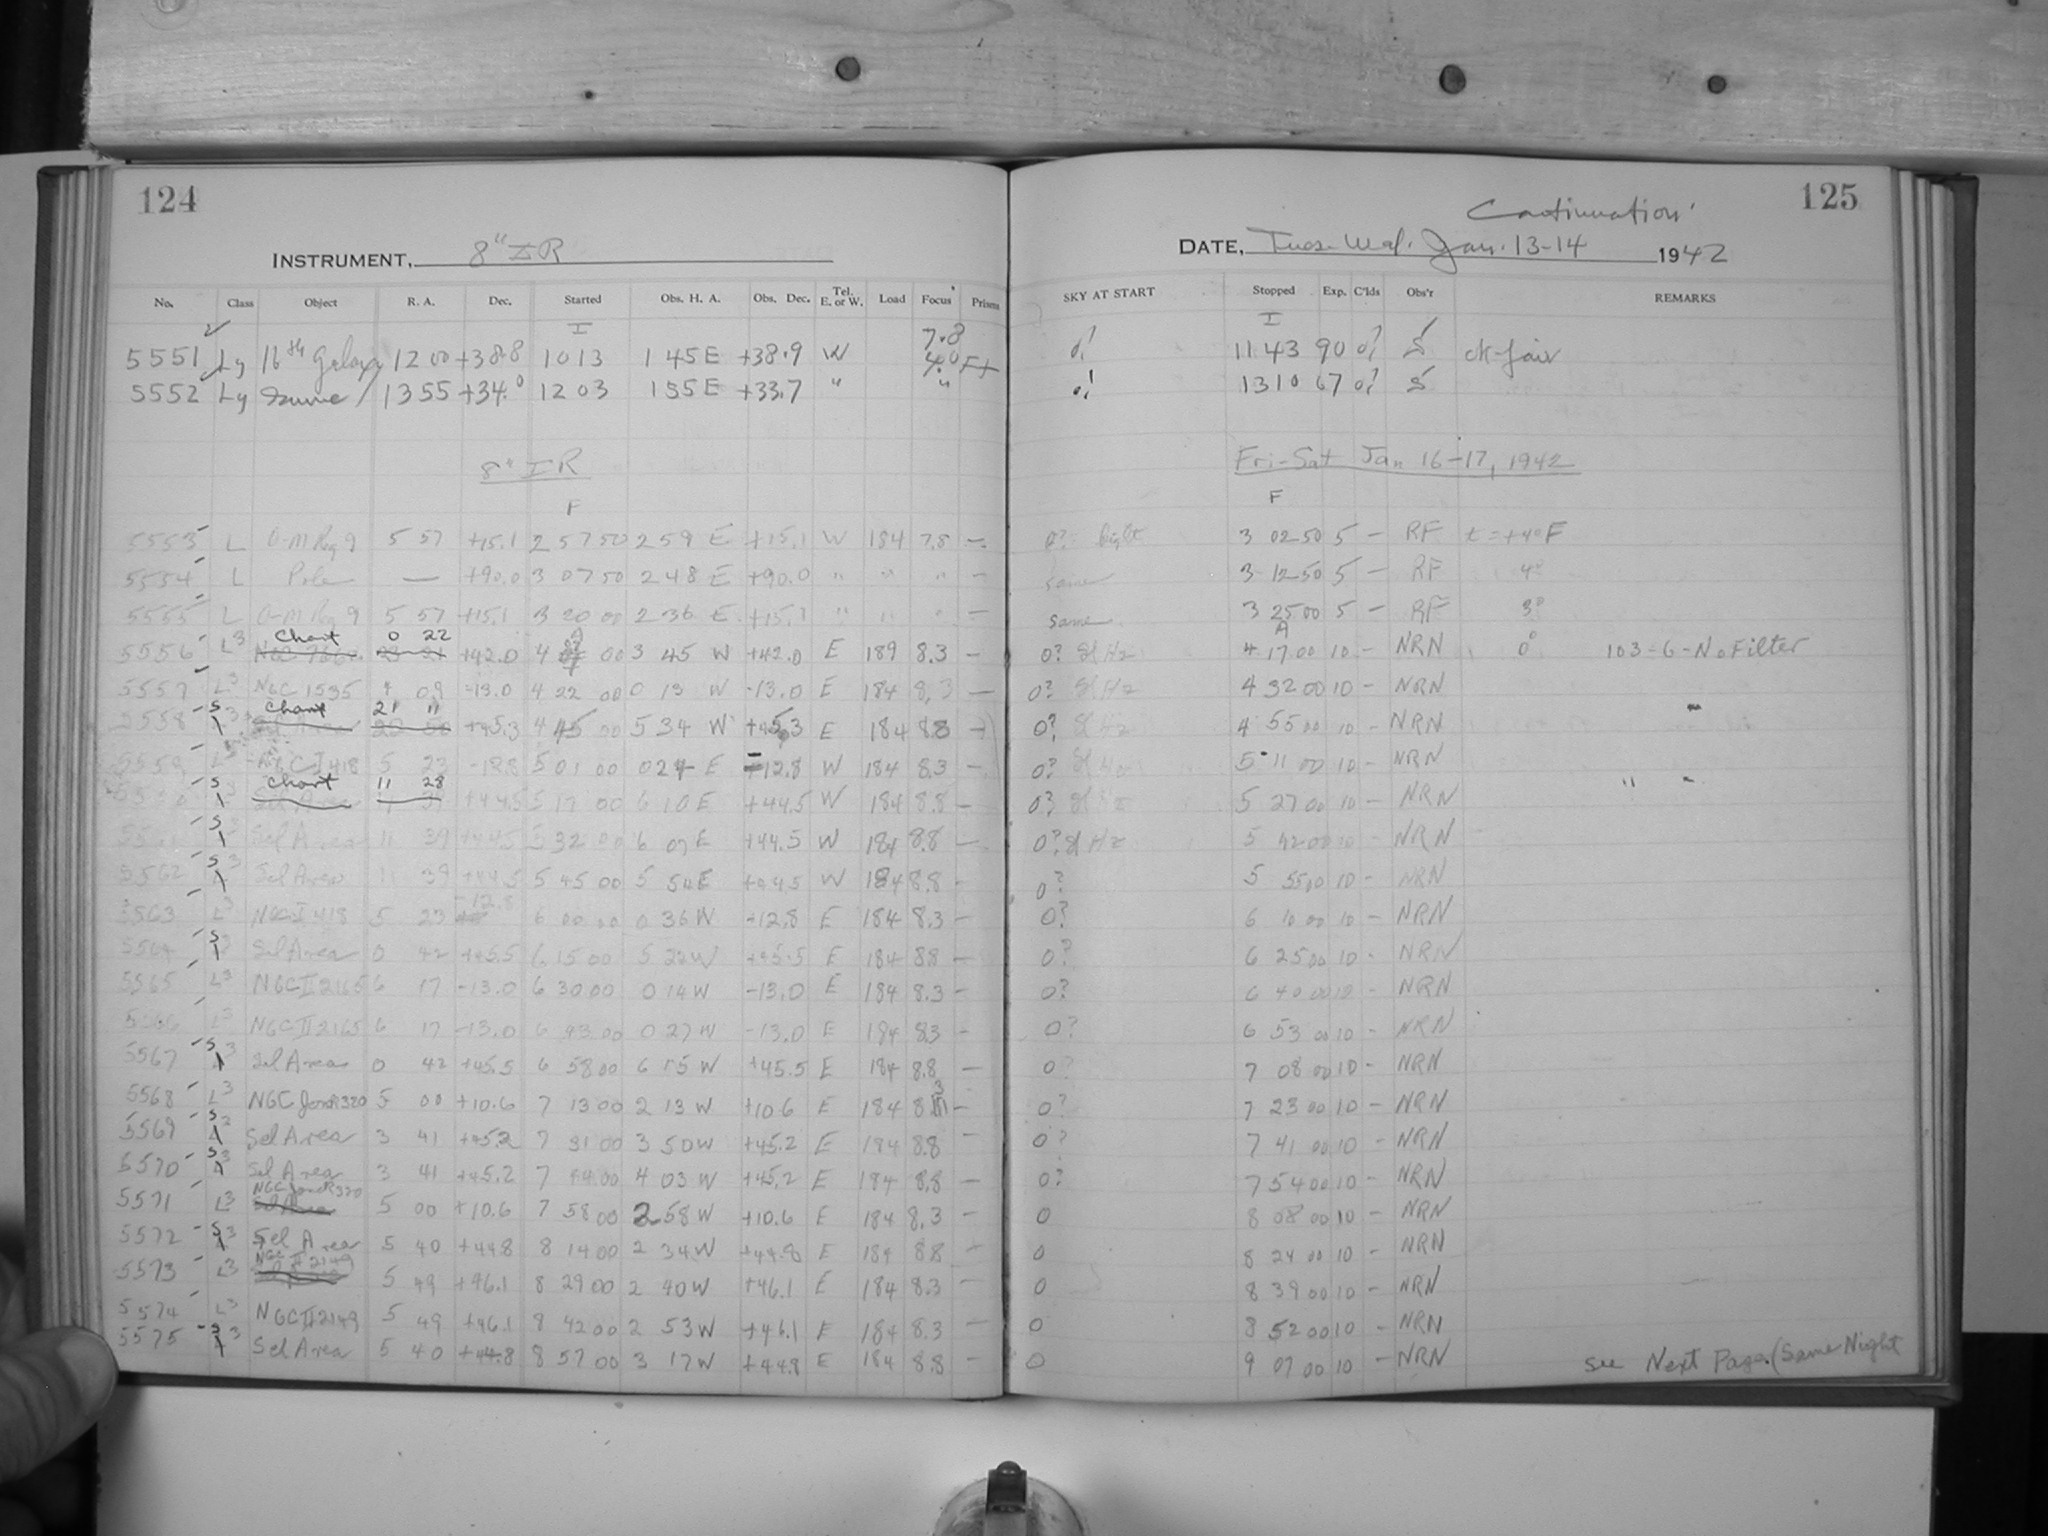 124
INSTRUMENT, 8" IR
No. Class Object R. A. Dec. Started Obs. H. A. Obs. Dec. Tel. E. or W. Load Focus Prisms
I 7.8
5551 Ly 16th Galaxy 12 00 +38.8 10 13 1 45 E +38.9 W 4.0 Ft
5552 Ly Same 13 55 +34.0 12 03 1 55 E +33.7 " "
8" IR
F
5553 L O-M Reg 9 5 57 +15.1 2 57 50 2 59 E +15.1 W 184 7.8 -
5554 L Pole — +90.0 3 07 50 2 48 E +90.0 " " " -
5555 L O-M Reg 9 5 57 +15.1 3 20 00 2 36 E +15.1 " " " -
Chart 0 22 A
5556 L3 +42.0 4 00 3 45 W +42.0 E 189 8.3 -
5557 L3 NGC 1535 4 09 -13.0 4 22 00 0 13 W -13.0 E 184 8.3 -
Chart 21 11
5558 S3 +45.3 4 45 00 5 34 W +45.3 E 184 8.8 -
5559 L3 NGC I 418 5 23 -12.8 5 01 00 0 24 E -12.8 W 184 8.3 -
Chart 11 28
S +44.5 5 17 00 6 10 E +44.5 W 184 8.8 -
S3 Sel Area 11 39 +44.5 5 32 00 6 07 E +44.5 W 184 8.8 -
5562 S3 Sel Area 11 39 +44.5 5 45 00 5 54 E +44.5 W 184 8.8 -
5563 L3 NGC I 418 5 23 -12.8 6 00 00 0 36 W -12.8 E 184 8.3 -
5564 S3 Sel Area 0 42 +45.5 6 15 00 5 32 W +45.5 E 184 8.8 -
5565 L3 NGC II 2165 6 17 -13.0 6 30 00 0 14 W -13.0 E 184 8.3 -
5566 L3 NGC II 2165 6 17 -13.0 6 43 00 0 27 W -13.0 E 184 8.3 -
5567 S3 Sel Area 0 42 +45.5 6 58 00 6 15 W +45.5 E 184 8.8 -
5568 L3 NGC Jonck 320 5 00 +10.6 7 13 00 2 13 W +10.6 E 184 8.3 -
5569 S2 Sel Area 3 41 +45.2 7 31 00 3 50 W +45.2 E 184 8.8 -
5570 S3 Sel Area 3 41 +45.2 7 44 00 4 03 W +45.2 E 184 8.8 -
NGC Jonck 320
5571 L3 5 00 +10.6 7 58 00 2 58 W +10.6 E 184 8.3 -
5572 S3 Sel Area 5 40 +44.8 8 14 00 2 34 W +44.8 E 184 8.8 -
NGC II 2149
5573 L3 5 49 +46.1 8 29 00 2 40 W +46.1 E 184 8.3 -
5574 L3 NGC II 2149 5 49 +46.1 8 42 00 2 53 W +46.1 E 184 8.3 -
5575 S3 Sel Area 5 40 +44.8 8 57 00 3 17 W +44.8 E 184 8.8 -
Continuation 125
DATE, Tues-Wed. Jan. 13-14 1942
SKY AT START Stopped Exp. C'lds Obs'r REMARKS
I
0! 11 43 90 0? S ck-fair
0! 13 10 67 0? S
Fri-Sat Jan 16-17, 1942
F
0? light 3 02 50 5 - RF t=+4°F
same 3 12 50 5 - RF 4°
same 3 25 00 5 - RF 3°
A
0? Sl Hz 4 17 00 10 - NRN 0° 103-G-No Filter
0? Sl Hz 4 32 00 10 - NRN
0? Sl Hz 4 55 00 10 - NRN "
0? Sl Hz 5 11 00 10 - NRN
0? Sl Hz 5 27 00 10 - NRN " "
0? Sl Hz 5 42 00 10 - NRN
0? 5 55 00 10 - NRN
0? 6 10 00 10 - NRN
0? 6 25 00 10 - NRN
0? 6 40 00 10 - NRN
0? 6 53 00 10 - NRN
0? 7 08 00 10 - NRN
0? 7 23 00 10 - NRN
0? 7 41 00 10 - NRN
0? 7 54 00 10 - NRN
0 8 08 00 10 - NRN
0 8 24 00 10 - NRN
0 8 39 00 10 - NRN
0 8 52 00 10 - NRN
0 9 07 00 10 - NRN see Next Page (Same Night